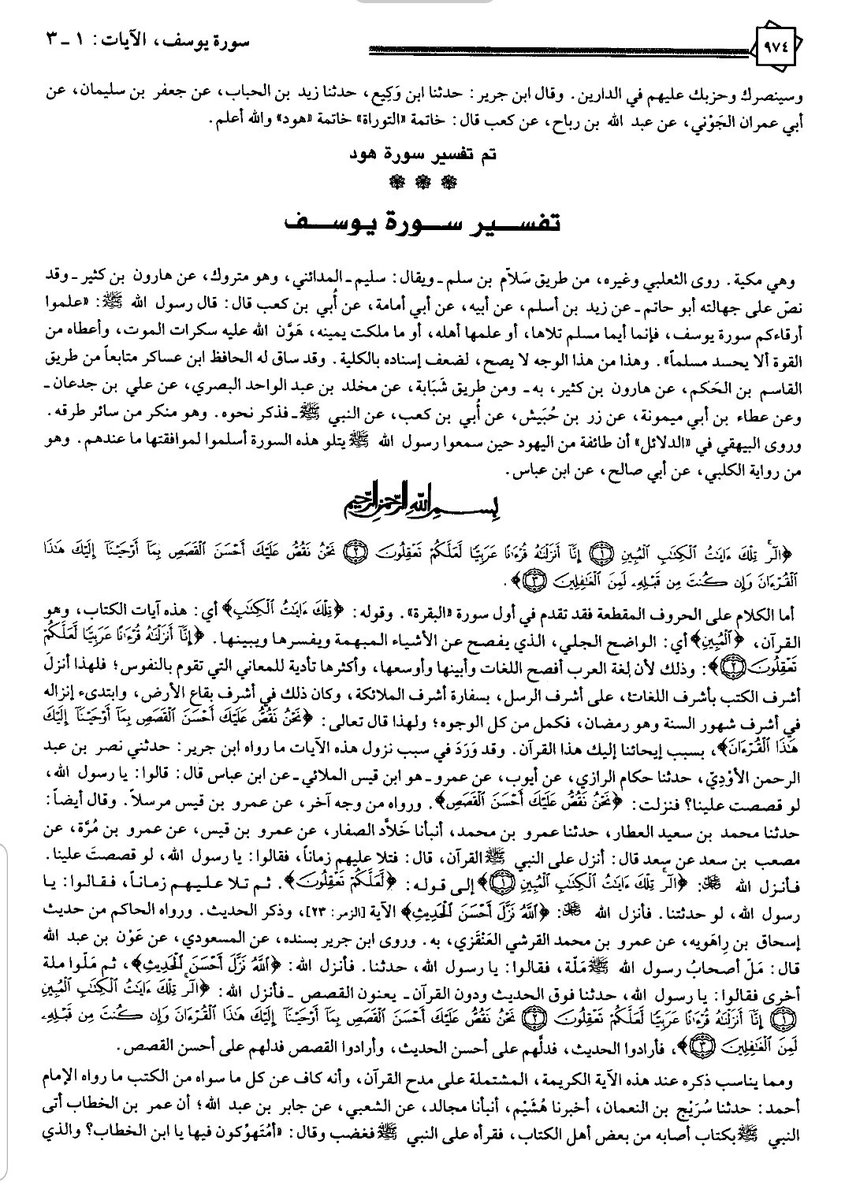 سورة يوسف، الآيات: ١ ـ ٣
٩٧٤
وسينصرك وحزبك عليهم في الدارين. وقال ابن جرير: حدثنا ابن وَكِيع، حدثنا زيد بن الحباب، عن جعفر بن سليمان، عن
أبي عمران الجَوْني، عن عبد الله بن رباح، عن كعب قال: خاتمة «التوراة» خاتمة «هود» والله أعلم.
تم تفسير سورة هود
تفسير سورة يوسف
وهي مكية. روى الثعلبي وغيره، من طريق سَلاّم بن سلم ـ ويقال: سليم ـ المدائني، وهو متروك، عن هارون بن كثير ـ وقد
نصّ على جهالته أبو حاتم ـ عن زيد بن أسلم، عن أبيه، عن أبي أمامة، عن أُبي بن كعب قال: قال رسول الله ﷺ: «علموا
أرقاءكم سورة يوسف، فإنما أيما مسلم تلاها، أو علمها أهله، أو ما ملكت يمينه، هَوَّن الله عليه سكرات الموت، وأعطاه من
القوة ألا يحسد مسلماً». وهذا من هذا الوجه لا يصح، لضعف إسناده بالكلية. وقد ساق له الحافظ ابن عساكر متابعاً من طريق
القاسم بن الحَكم، عن هارون بن كثير، به ـ ومن طريق شَبَابة، عن مخلد بن عبد الواحد البصري، عن علي بن جدعان ـ
وعن عطاء بن أبي ميمونة، عن زر بن حُبَيش، عن أُبي بن كعب، عن النبي ﷺ ـ فذكر نحوه. وهو منكر من سائر طرقه.
وروى البيهقي في «الدلائل» أن طائفة من اليهود حين سمعوا رسول الله ﷺ يتلو هذه السورة أسلموا لموافقتها ما عندهم. وهو
من رواية الكلبي، عن أبي صالح، عن ابن عباس.
بِسْمِ اللَّهِ الرَّحْمَنِ الرَّحِيمِ
﴿الٓر تِلْكَ ءَايَٰتُ ٱلْكِتَٰبِ ٱلْمُبِينِ ١ إِنَّآ أَنزَلْنَٰهُ قُرْءَٰنًا عَرَبِيًّا لَّعَلَّكُمْ تَعْقِلُونَ ٢ نَحْنُ نَقُصُّ عَلَيْكَ أَحْسَنَ ٱلْقَصَصِ بِمَآ أَوْحَيْنَآ إِلَيْكَ هَٰذَا
ٱلْقُرْءَانَ وَإِن كُنتَ مِن قَبْلِهِۦ لَمِنَ ٱلْغَٰفِلِينَ ٣﴾.
أما الكلام على الحروف المقطعة فقد تقدم في أول سورة «البقرة». وقوله: ﴿تِلْكَ ءَايَٰتُ ٱلْكِتَٰبِ﴾ أي: هذه آيات الكتاب، وهو
القرآن، ﴿ٱلْمُبِينِ﴾ أي: الواضح الجلي، الذي يفصح عن الأشياء المبهمة ويفسرها ويبينها. ﴿إِنَّآ أَنزَلْنَٰهُ قُرْءَٰنًا عَرَبِيًّا لَّعَلَّكُمْ
تَعْقِلُونَ ٢﴾: وذلك لأن لغة العرب أفصح اللغات وأبينها وأوسعها، وأكثرها تأدية للمعاني التي تقوم بالنفوس؛ فلهذا أنزلَ
أشرف الكتب بأشرف اللغات، على أشرف الرسل، بسفارة أشرف الملائكة، وكان ذلك في أشرف بقاع الأرض، وابتدىء إنزاله
في أشرف شهور السنة وهو رمضان، فكمل من كل الوجوه؛ ولهذا قال تعالى: ﴿نَحْنُ نَقُصُّ عَلَيْكَ أَحْسَنَ ٱلْقَصَصِ بِمَآ أَوْحَيْنَآ إِلَيْكَ
هَٰذَا ٱلْقُرْءَانَ﴾، بسبب إيحائنا إليك هذا القرآن. وقد وَرَدَ في سبب نزول هذه الآيات ما رواه ابن جرير: حدثني نصر بن عبد
الرحمن الأوْديّ، حدثنا حكام الرازي، عن أيوب، عن عمرو ـ هو ابن قيس الملائي ـ عن ابن عباس قال: قالوا: يا رسول الله،
لو قصصت علينا؟ فنزلت: ﴿نَحْنُ نَقُصُّ عَلَيْكَ أَحْسَنَ ٱلْقَصَصِ﴾. ورواه من وجه آخر، عن عمرو بن قيس مرسلاً. وقال أيضاً:
حدثنا محمد بن سعيد العطار، حدثنا عمرو بن محمد، أنبأنا خَلاَّد الصفار، عن عمرو بن قيس، عن عمرو بن مُرَّة، عن
مصعب بن سعد عن سعد قال: أنزل على النبي ﷺ القرآن، قال: فتلا عليهم زماناً، فقالوا: يا رسول الله، لو قصصتَ علينا.
فأنزل الله : ﴿الٓر تِلْكَ ءَايَٰتُ ٱلْكِتَٰبِ ٱلْمُبِينِ ١﴾ إلى قوله: ﴿لَعَلَّكُمْ تَعْقِلُونَ﴾. ثم تلا عليهم زماناً، فقالوا: يا
رسول الله، لو حدثتنا. فأنزل الله : ﴿ٱللَّهُ نَزَّلَ أَحْسَنَ ٱلْحَدِيثِ﴾ الآية [الزمر: ٢٣]، وذكر الحديث. ورواه الحاكم من حديث
إسحاق بن رَاهَويه، عن عمرو بن محمد القرشي العَنْقَزي، به. وروى ابن جرير بسنده، عن المسعودي، عن عَوْن بن عبد الله
قال: مَلّ أصحابُ رسول الله ﷺ مَلَّة، فقالوا: يا رسول الله، حدثنا. فأنزل الله: ﴿ٱللَّهُ نَزَّلَ أَحْسَنَ ٱلْحَدِيثِ﴾، ثم مَلّوا ملة
أخرى فقالوا: يا رسول الله، حدثنا فوق الحديث ودون القرآن ـ يعنون القصص ـ فأنزل الله: ﴿الٓر تِلْكَ ءَايَٰتُ ٱلْكِتَٰبِ ٱلْمُبِينِ
١ إِنَّآ أَنزَلْنَٰهُ قُرْءَٰنًا عَرَبِيًّا لَّعَلَّكُمْ تَعْقِلُونَ ٢ نَحْنُ نَقُصُّ عَلَيْكَ أَحْسَنَ ٱلْقَصَصِ بِمَآ أَوْحَيْنَآ إِلَيْكَ هَٰذَا ٱلْقُرْءَانَ وَإِن كُنتَ مِن قَبْلِهِۦ
لَمِنَ ٱلْغَٰفِلِينَ ٣﴾، فأرادوا الحديث، فدلَّهم على أحسن الحديث، وأرادوا القصص فدلهم على أحسن القصص.
ومما يناسب ذكره عند هذه الآية الكريمة، المشتملة على مدح القرآن، وأنه كاف عن كل ما سواه من الكتب ما رواه الإمام
أحمد: حدثنا سُرَيْج بن النعمان، أخبرنا هُشَيْم، أنبأنا مجالد، عن الشعبي، عن جابر بن عبد الله؛ أن عمر بن الخطاب أتى
النبي ﷺ بكتاب أصابه من بعض أهل الكتاب، فقرأه على النبي ﷺ فغضب وقال: «أمُتَهوِّكون فيها يا ابن الخطاب؟ والذي